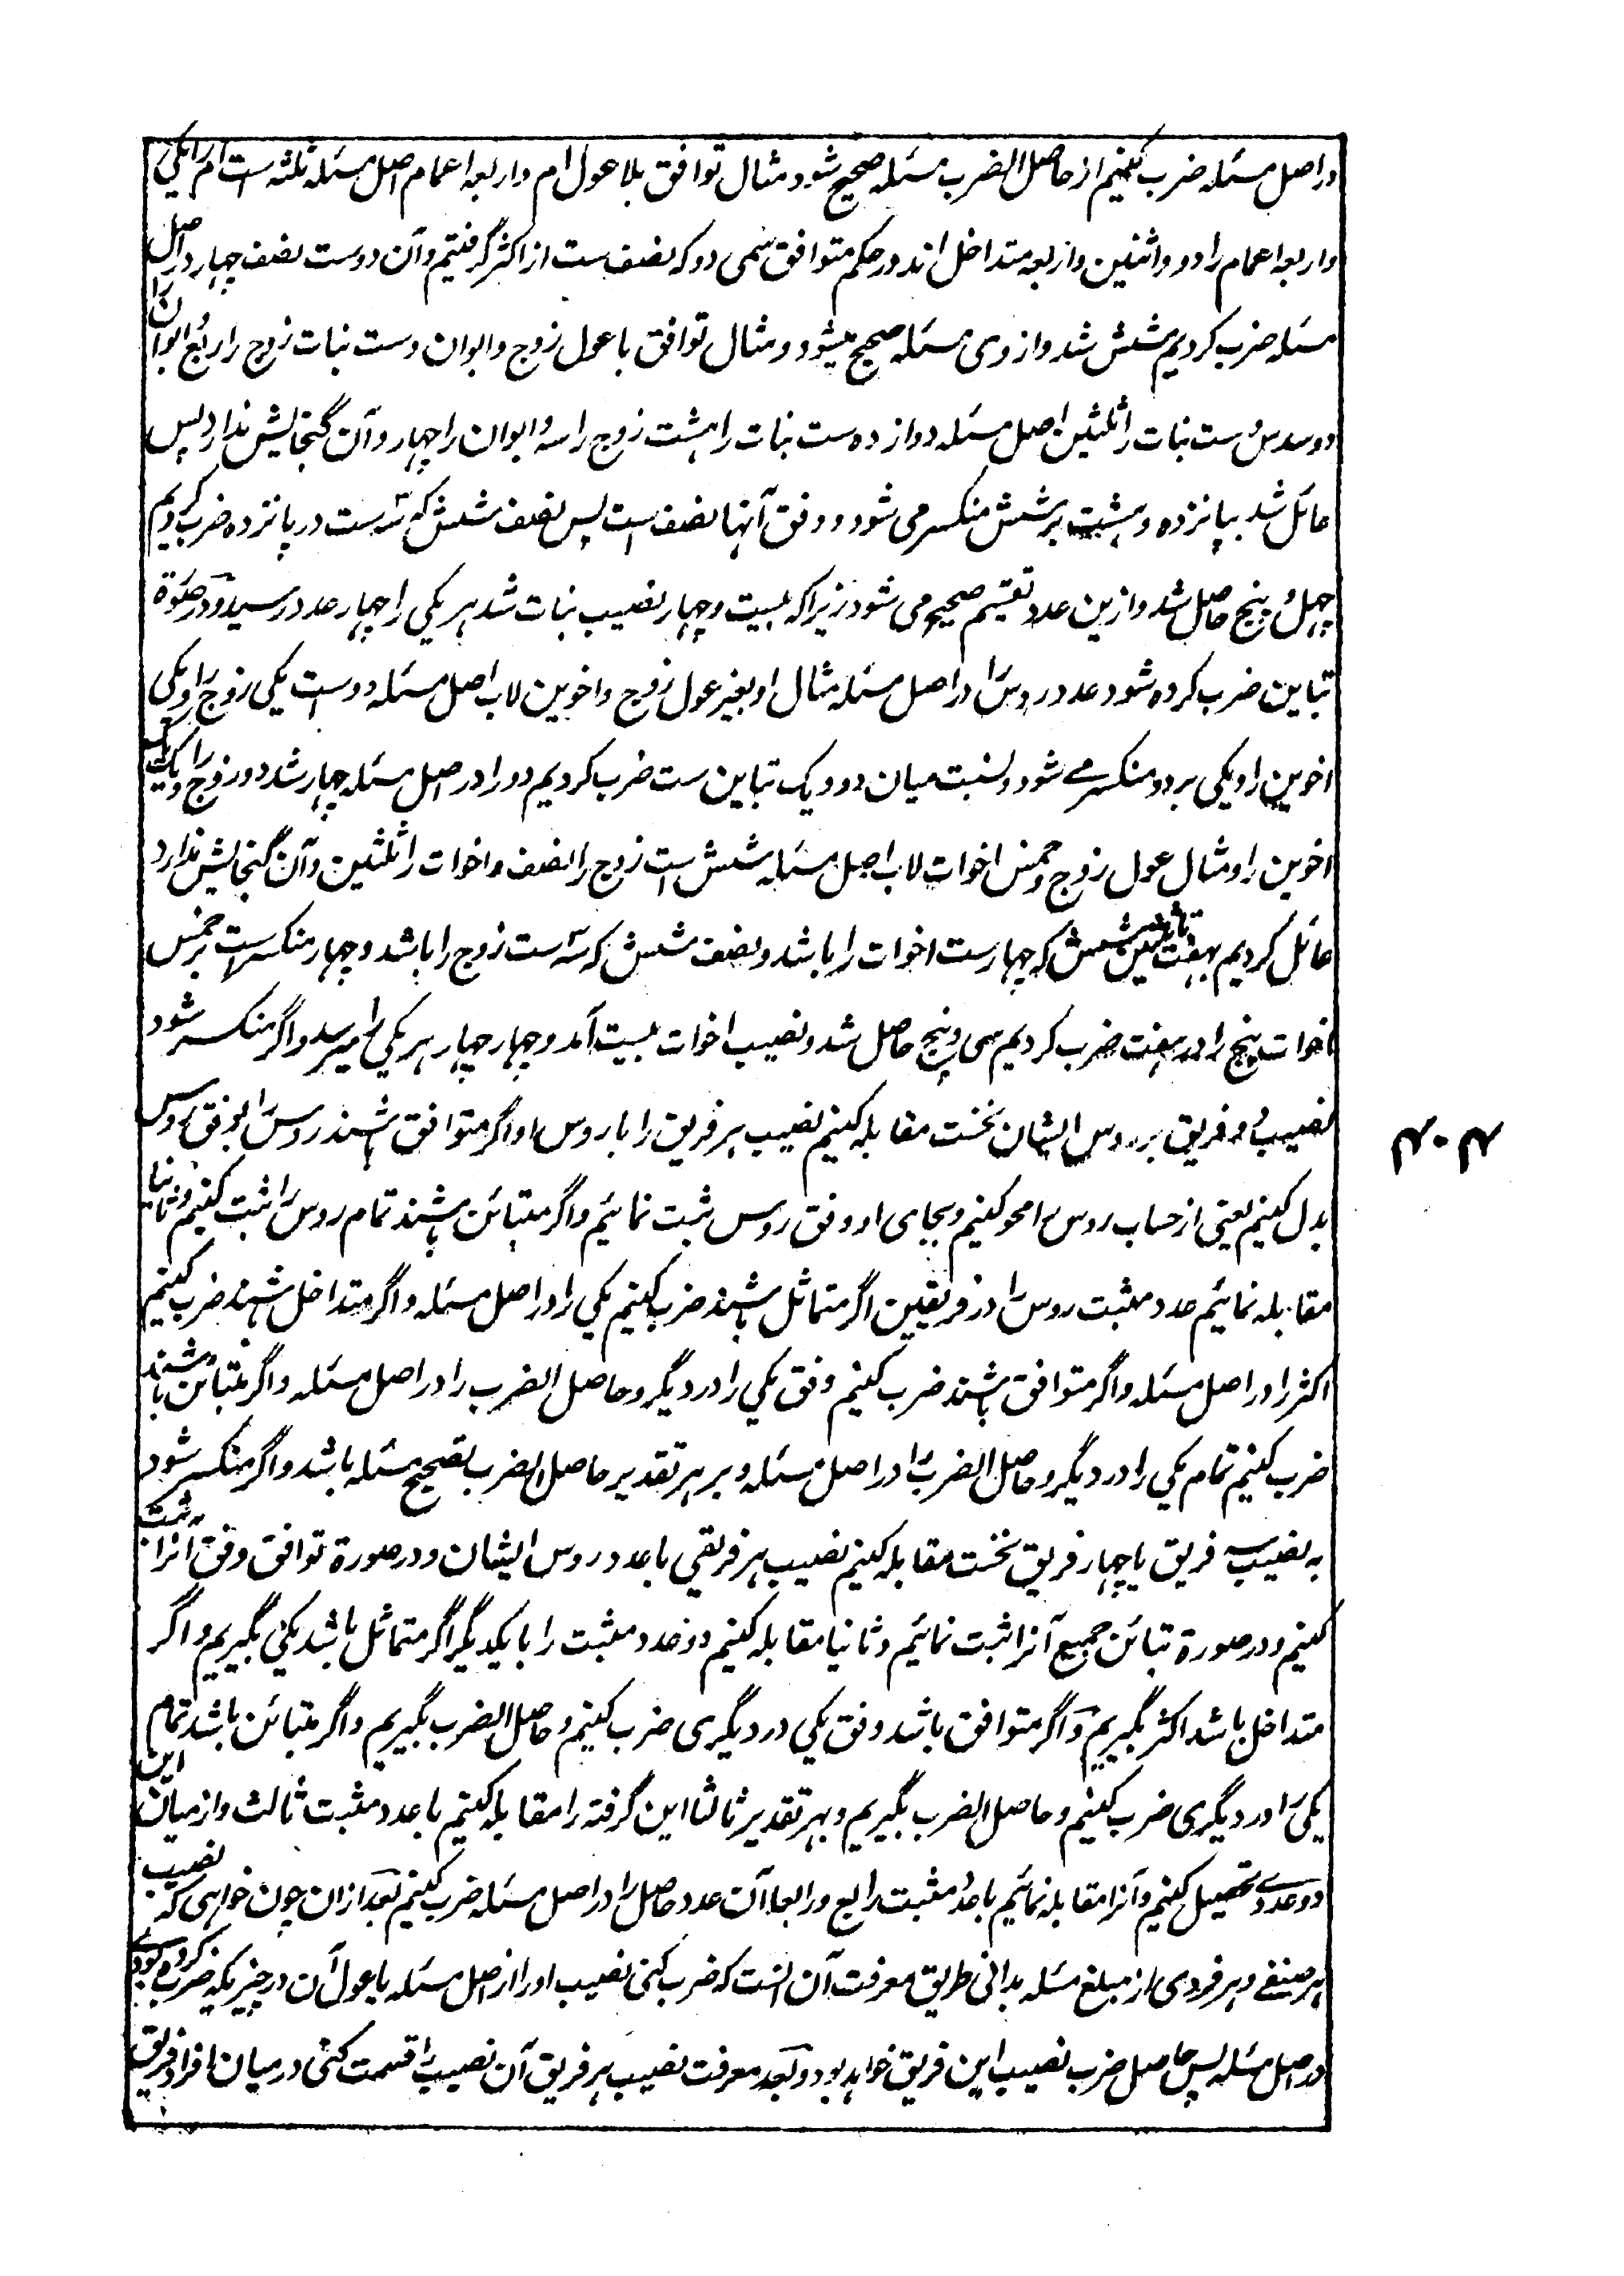 در اصل مسئله ضرب کنیم از حاصل الضرب مسئله صحیح شود مثال توافق بلا عول ام و اربعه اعمام اصل مسئله ثلثه است ام را یکی
و اربعه اعمام را دو و اثنین و اربعه متداخل اند در حکم متوافق سمی دو که نصف ست از اکثر گرفتیم و آن دوست نصف چهار در اصل
مسئله ضرب کردیم شش شد و از وی مسئله صحیح میشود و مثال توافق با عول زوج و ابوان و ست بنات زوج را ربع و ابوان را
دو سدس و ست بنات را ثلثین اصل مسئله دوازده ست بنات را هشت زوج را سه و ابوان را چهار و آن گنجایش ندارد پس
عائل شد بپانزده و هشت بر شش منکسر می شود و وفق آنها نصف است پس نصف شش که سه ست در پانزده ضرب کردیم
چهل و پنج حاصل شد و ازین عدد تقسیم صحیح می شود زیرا که بیست و چهار نصیب بنات شد هر یکی را چهار عدد رسید و در صورة
تباین ضرب کرده شود عدد روس را در اصل مسئله مثال او بغیر عول زوج و اخوین لاب اصل مسئله دو است یکی زوج را و یکی
اخوین را و یکی بر دو منکسر مے شود و نسبت میان دو و یک تباین ست ضرب کردیم دو را در اصل مسئله چهار شد دو زوج را و یک یک
اخوین را و مثال عول زوج و خمس اخوات لاب اصل مسئله شش است زوج را نصف و اخوات را ثلثین و آن گنجایش ندارد
عائل کردیم بهفت تا ثلثین شش که چهار ست اخوات را باشد و نصف شش که سه ست زوج را باشد و چهار منکسر ست بر خمس
اخوات پنج را در هفت ضرب کردیم سی و پنج حاصل شد و نصیب اخوات بیست آمد و چهار چهار هر یکی را میرسد و اگر منکسر شود
نصیب دو فریق بر روس ایشان نخست مقابله کنیم نصیب هر فریق را با روس او اگر متوافق باشند روس را بوفق روس
بدل کنیم یعنی از حساب روس را محو کنیم و بجای او وفق روس ثبت نمائیم و اگر متبائن باشند تمام روس را ثبت کنیم و ثانیا
مقابله نمائیم عدد مثبت روس را در فریقین اگر متماثل باشند ضرب کنیم یکی را در اصل مسئله و اگر متداخل باشند ضرب کنیم
اکثر را در اصل مسئله و اگر متوافق باشند ضرب کنیم وفق یکی را در دیگر و حاصل الضرب را در اصل مسئله و اگر متبائن باشند
ضرب کنیم تمام یکی را در دیگر و حاصل الضرب را در اصل مسئله و بر هر تقدیر حاصل الضرب تصحیح مسئله باشد و اگر منکسر شود
نصیب سه فریق یا چهار فریق نخست مقابله کنیم نصیب هر فریقی با عدد روس ایشان و در صورة توافق وفق آنرا ثبت
کنیم و در صورة تبائن جمیع آنرا ثبت نمائیم و ثانیا مقابله کنیم دو عدد مثبت را با یکدیگر اگر متماثل باشد یکی بگیریم و اگر
متداخل باشد اکثر بگیریم و اگر متوافق باشد وفق یکی در دیگری ضرب کنیم و حاصل الضرب بگیریم و اگر متبائن باشد تمام
یکی را در دیگری ضرب کنیم و حاصل الضرب بگیریم و بهر تقدیر ثالثا این گرفته را مقابله کنیم با عدد مثبت ثالث و از میان این
دو عددے تحصیل کنیم و آنرا مقابله نمائیم با عدد مثبت رابع و رابعا آن عدد حاصل را در اصل مسئله ضرب کنیم بعد ازان چون خواهی که نصیب
هر صنفے و هر فردی از مبلغ مسئله بدانی طریق معرفت آن انست که ضرب کنی نصیب او را از اصل مسئله یا عول آن در چیزیکه ضرب کرده بودے
در اصل مسئله پس حاصل ضرب نصیب این فریق خواهد بود و بعد معرفت نصیب هر فریق آن نصیب را قسمت کنی در میان افراد فریق